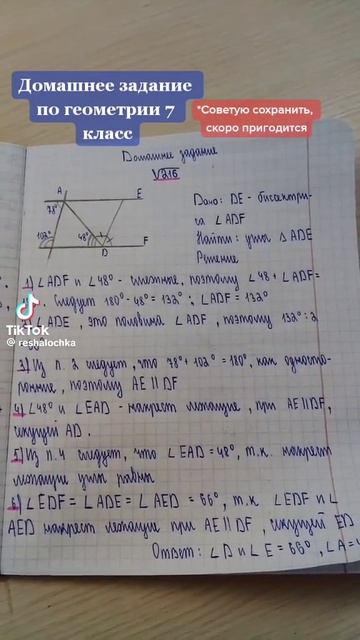 Домашнее задание
по геометрии 7
класс
*Советую сохранить,
скоро пригодится
Домашнее задание
√216
A E
78°
102° 48° F
D
Дано: DE - бисектри-
са ∠ADF
Найти: углы △ ADE
Решение
1) ∠ADF и ∠48° - смежные, поэтому ∠48 + ∠ADF =
следует 180° - 48° = 132° ; ∠ADF = 132°
∠ADE , это половина ∠ADF , поэтому 132° : 2
3) Из п. 2 следует, что 78° + 102° = 180°, как односто-
ронние, поэтому AE || DF
4) ∠48° и ∠EAD - накрест лежащие, при AE || DF,
секущей AD .
5) Из п. 4 следует, что ∠EAD = 48°, т.к. накрест
лежащие углы равны
6) ∠EDF = ∠ADE = ∠AED = 66°, т.к ∠EDF и ∠
AED накрест лежащие при AE || DF , секущей ED
Ответ: ∠D и ∠E = 66°, ∠A = 4
TikTok
@reshalochka